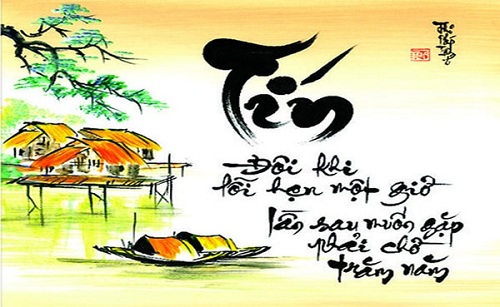 Tín
Đôi khi
lỗi hẹn một giờ
lần sau muốn gặp
phải chờ
trăm năm